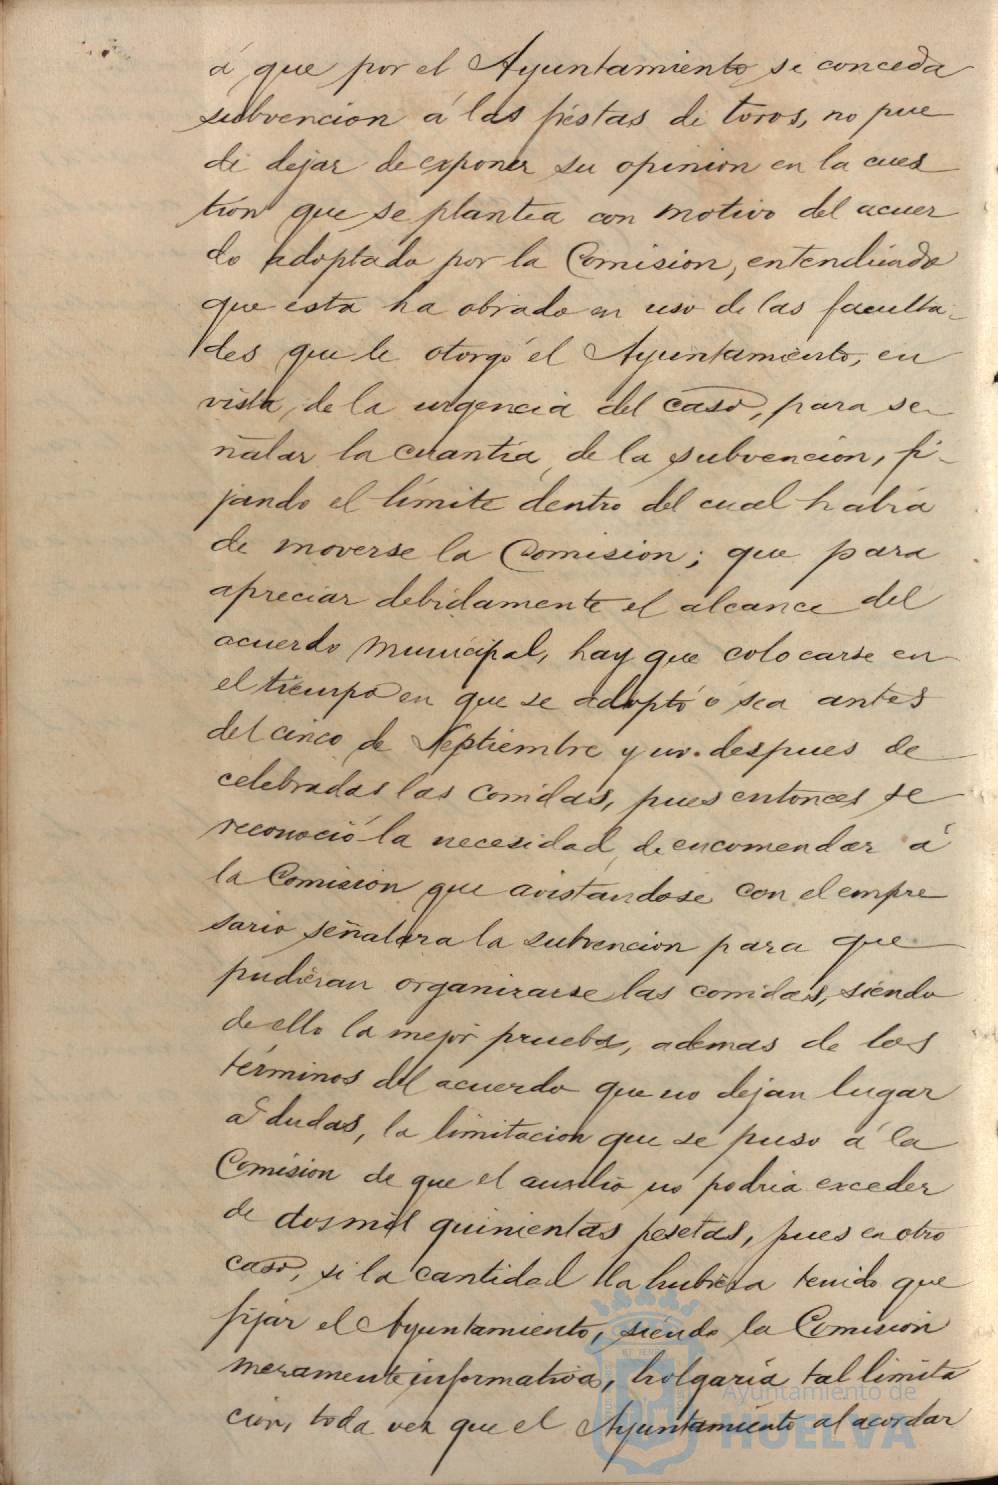 á que por el Ayuntamiento se conceda
subvencion á las fiestas de toros, no pue
de dejar de exponer su opinion en la cues
tion que se plantea con motivo del acuer
do adoptado por la Comision, entendiendo
que esta ha obrado en uso de las faculta-
des que le otorgó el Ayuntamiento, en
vista, de la urgencia del caso, para se-
ñalar la cuantía, de la subvencion, fi-
jando el límite dentro del cual habia
de moverse la Comision; que para
apreciar debidamente el alcance del
acuerdo municipal, hay que colocarse en
el tiempo en que se adoptó ó sea antes
del cinco de Septiembre y no despues de
celebradas las corridas, pues entonces se
reconoció la necesidad, de encomendar á
la Comision que avistandose con el empre
sario señalara la subvencion para que
pudieran organizarse las corridas, siendo
de ello la mejor prueba, ademas de los
términos del acuerdo que no dejan lugar
a dudas, la limitacion que se puso á la
Comision de que el auxilio no podria exceder
de dos mil quinientas pesetas, pues en otro
caso, si la cantidad la hubiera tenido que
fijar el Ayuntamiento, siendo la Comision
meramente informativa, holgaría tal limita
cion, toda vez que el Ayuntamiento al acordar
Ayuntamiento de
HUELVA